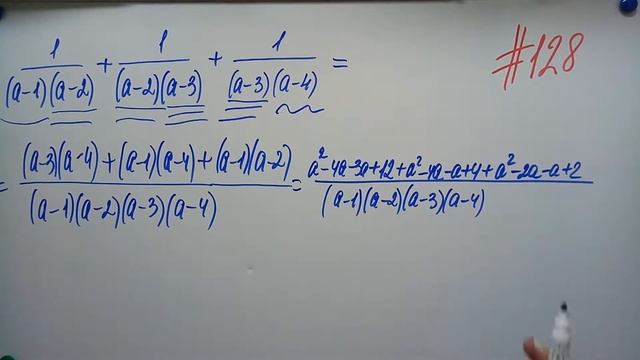 1/((a-1)(a-2)) + 1/((a-2)(a-3)) + 1/((a-3)(a-4)) =
#128
= ((a-3)(a-4)+(a-1)(a-4)+(a-1)(a-2))/((a-1)(a-2)(a-3)(a-4)) = (a²-4a-3a+12+a²-4a-a+4+a²-2a-a+2)/((a-1)(a-2)(a-3)(a-4))